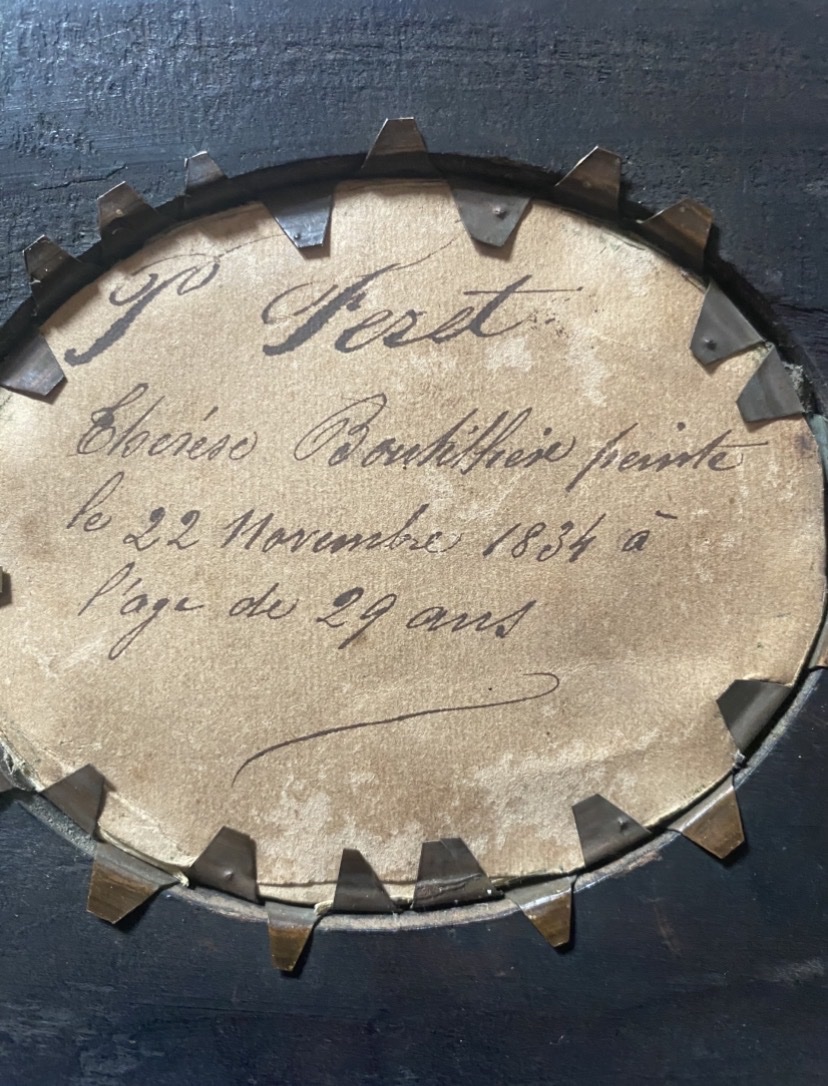 P Feret
Therése Bouthillier peinte
le 22 Novembre 1834 à
l'age de 29 ans